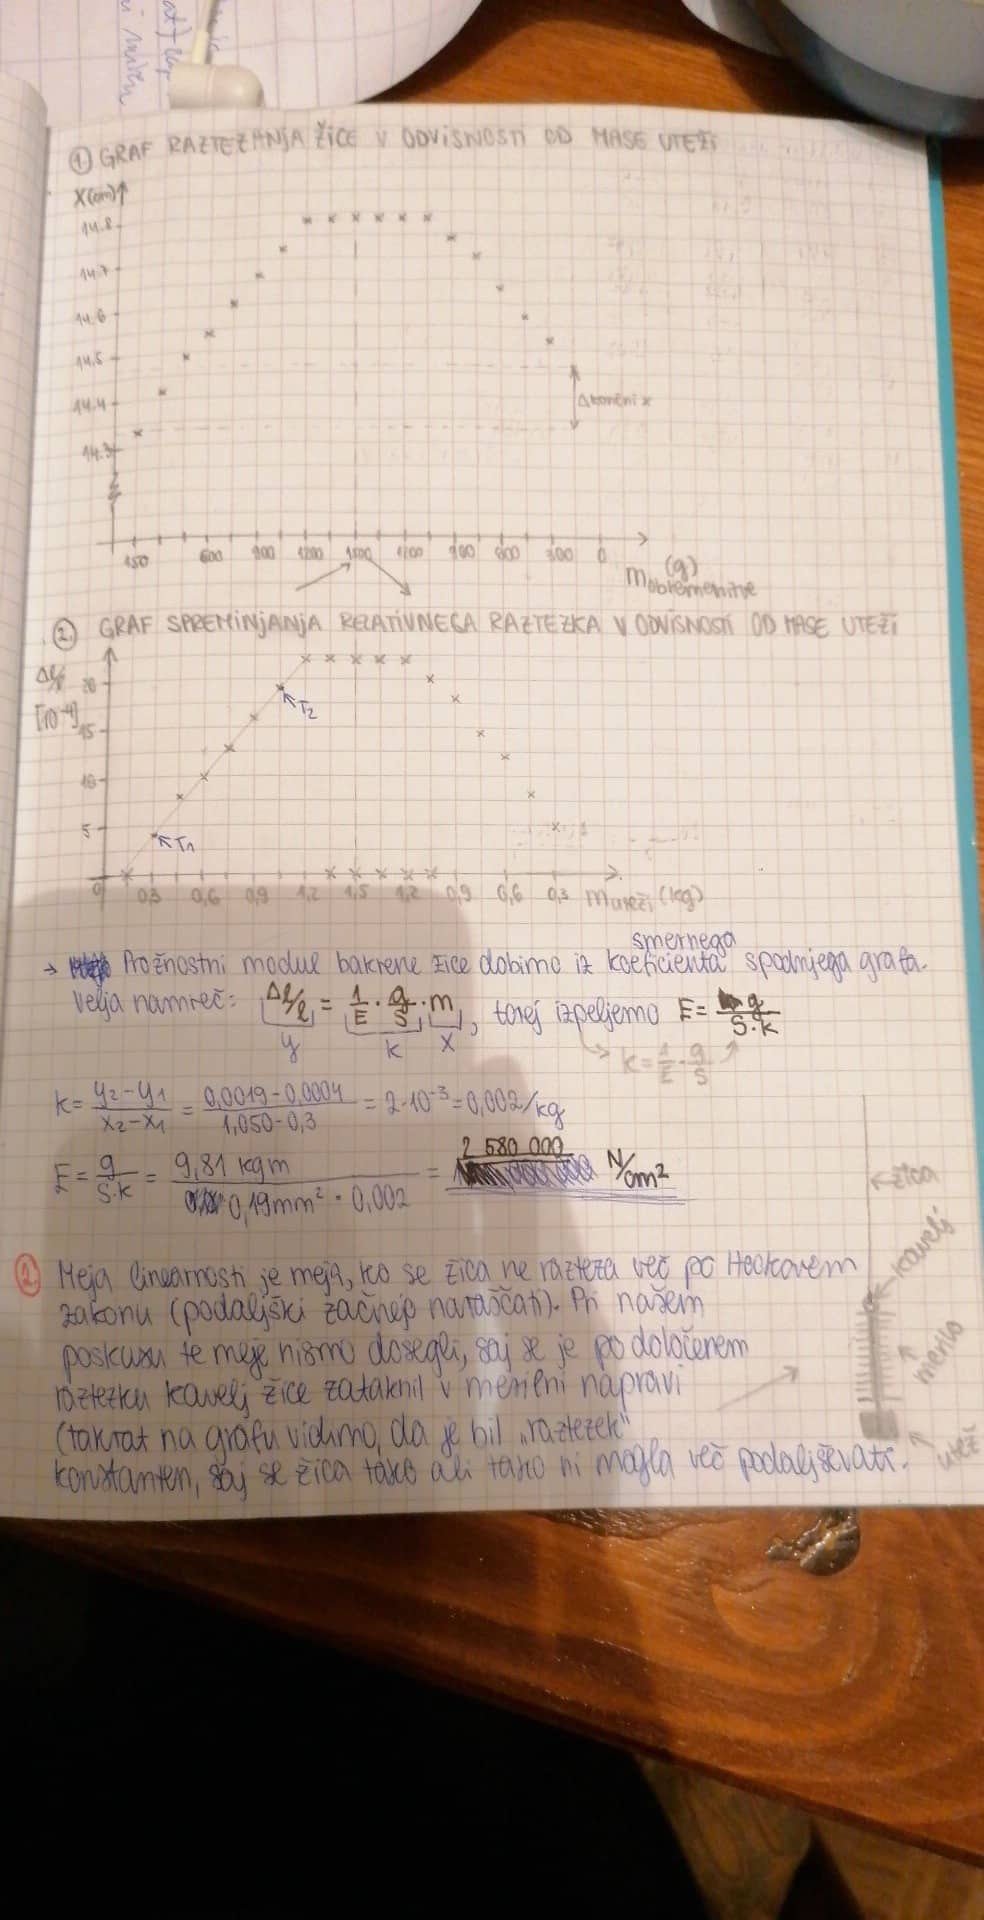 ① GRAF RAZTEZANJA ŽICE V ODVISNOSTI OD MASE UTEŽI
X(cm)
14.8
14.7
14.6
14.5
14.4
14.3
Δ končni x
150 600 900 1200 1500 1200 900 600 300 0
m obremenitve (g)
② GRAF SPREMINJANJA RELATIVNEGA RAZTEZKA V ODVISNOSTI OD MASE UTEŽI
Δl/l
[10⁻⁴]
20
15
10
5
0
T₂
T₁
0,3 0,6 0,9 1,2 1,5 1,2 0,9 0,6 0,3 m uteži (kg)
smernega
→ Prožnostni modul bakrene žice dobimo iz koeficienta spodnjega grafa.
Velja namreč: Δl/l = 1/E · g/S · m, torej izpeljemo E = g/S·k
y k x
k = 1/E · g/S
k = y₂-y₁/x₂-x₁ = 0,0019-0,0004/1,050-0,3 = 2·10⁻³ = 0,002/kg
E = g/S·k = 9,81 kgm/0,19mm² · 0,002 = 2 580 000 N/cm²
žica
kavelj
merilo
utež
2. Meja linearnosti je meja, ko se žica ne razteza več po Hookovem
zakonu (podaljški začnejo naraščati). Pri našem
poskusu te meje nismo dosegli, saj se je po določenem
raztezku kavelj žice zataknil v merilni napravi
(takrat na grafu vidimo, da je bil „raztezek"
konstanten, saj se žica tako ali tako ni mogla več podaljševati.